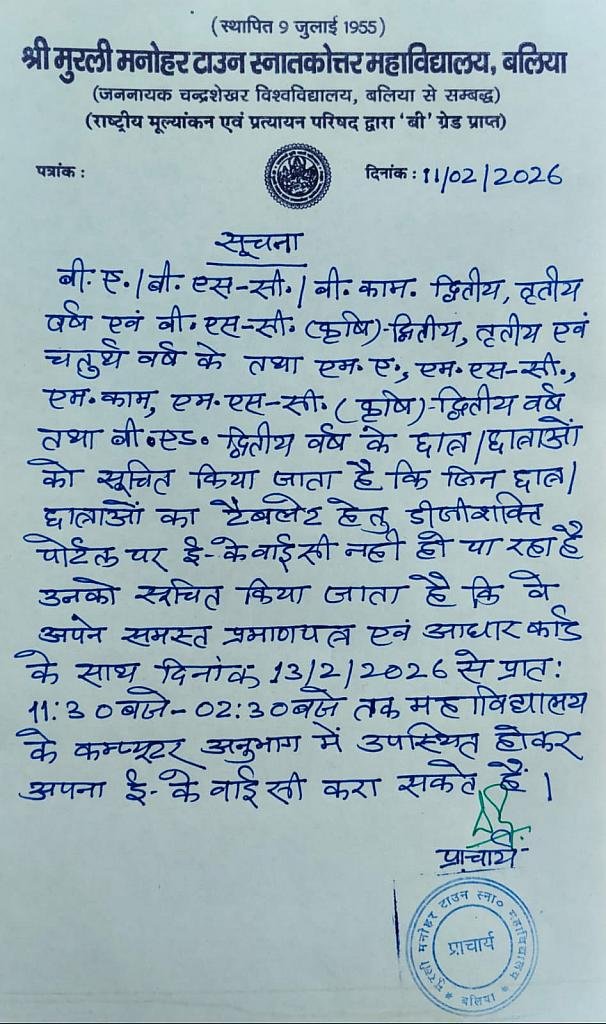 (स्थापित 9 जुलाई 1955)
श्री मुरली मनोहर टाउन स्नातकोत्तर महाविद्यालय, बलिया
(जननायक चन्द्रशेखर विश्वविद्यालय, बलिया से सम्बद्ध)
(राष्ट्रीय मूल्यांकन एवं प्रत्यायन परिषद द्वारा 'बी' ग्रेड प्राप्त)
पत्रांक :
दिनांक : 11/02/2026
सूचना
बी.ए./बी.एस-सी./बी.काम. द्वितीय, तृतीय
वर्ष एवं बी.एस-सी.(कृषि)-द्वितीय, तृतीय एवं
चतुर्थ वर्ष के तथा एम.ए., एम.एस-सी.,
एम.काम, एम.एस-सी.(कृषि)-द्वितीय वर्ष
तथा बी.एड. द्वितीय वर्ष के छात्र/छात्राओं
को सूचित किया जाता है कि जिन छात्र/
छात्राओं का टैबलेट हेतु डीजीशक्ति
पोर्टल पर ई-केवाईसी नहीं हो पा रहा है
उनको सूचित किया जाता है कि वे
अपने समस्त प्रमाणपत्र एवं आधार कार्ड
के साथ दिनांक 13/2/2026 से प्रात:
11:30 बजे-02:30 बजे तक महाविद्यालय
के कम्प्यूटर अनुभाग में उपस्थित होकर
अपना ई-केवाईसी करा सकते हैं।
प्राचार्य
मुरली मनोहर टाउन स्ना० महाविद्यालय
प्राचार्य
* बलिया *